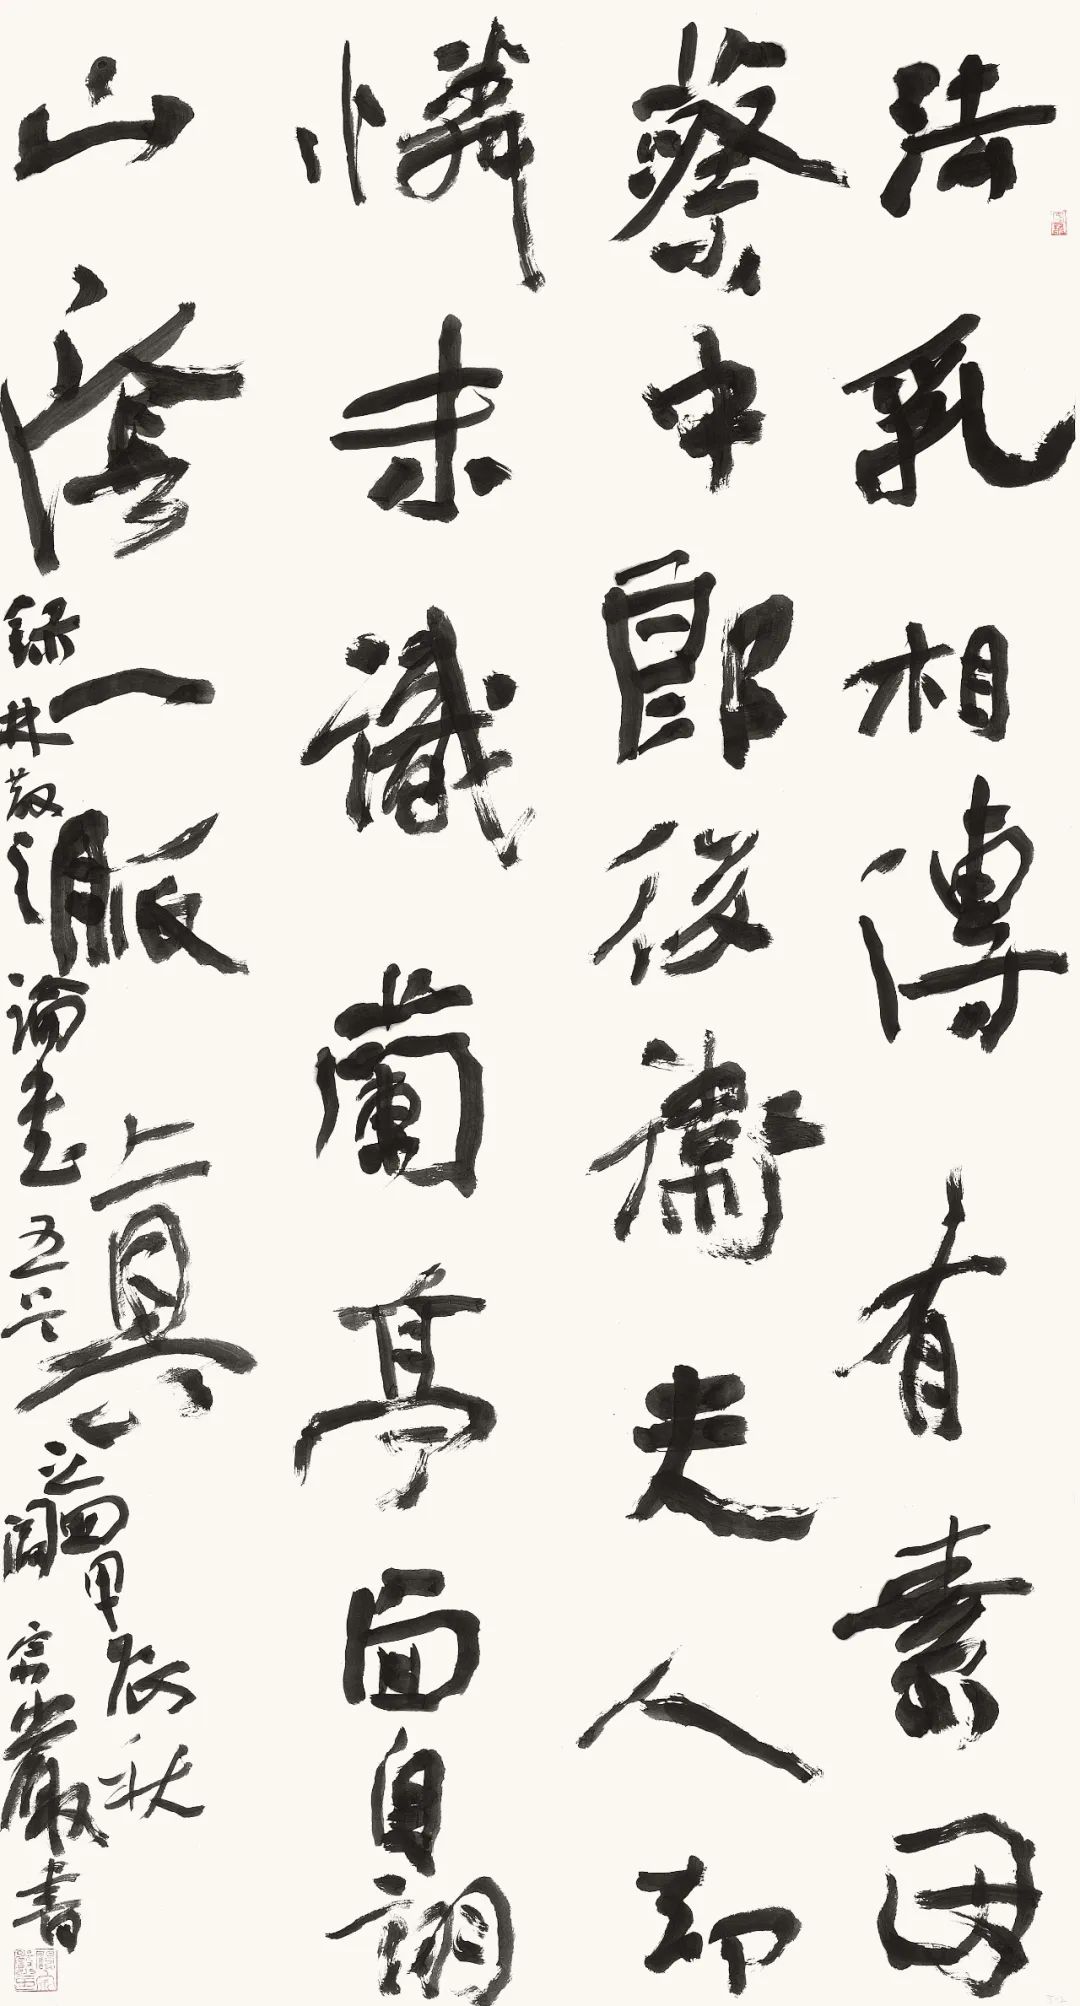 法乳相傳有素因
蔡中郎後衛夫人却
憐未識蘭亭面自詡
山陰一脈真
錄林散之論書五
之四甲辰秋
閻宗嚴書